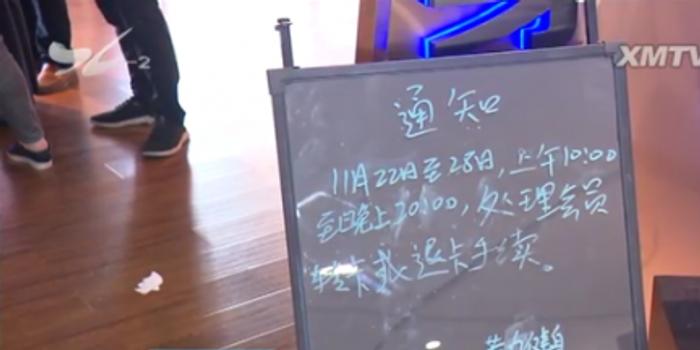 XMTV
通知
11月22日至28日,上午10:00
至晚上20:00,处理会员
转卡或退卡手续。